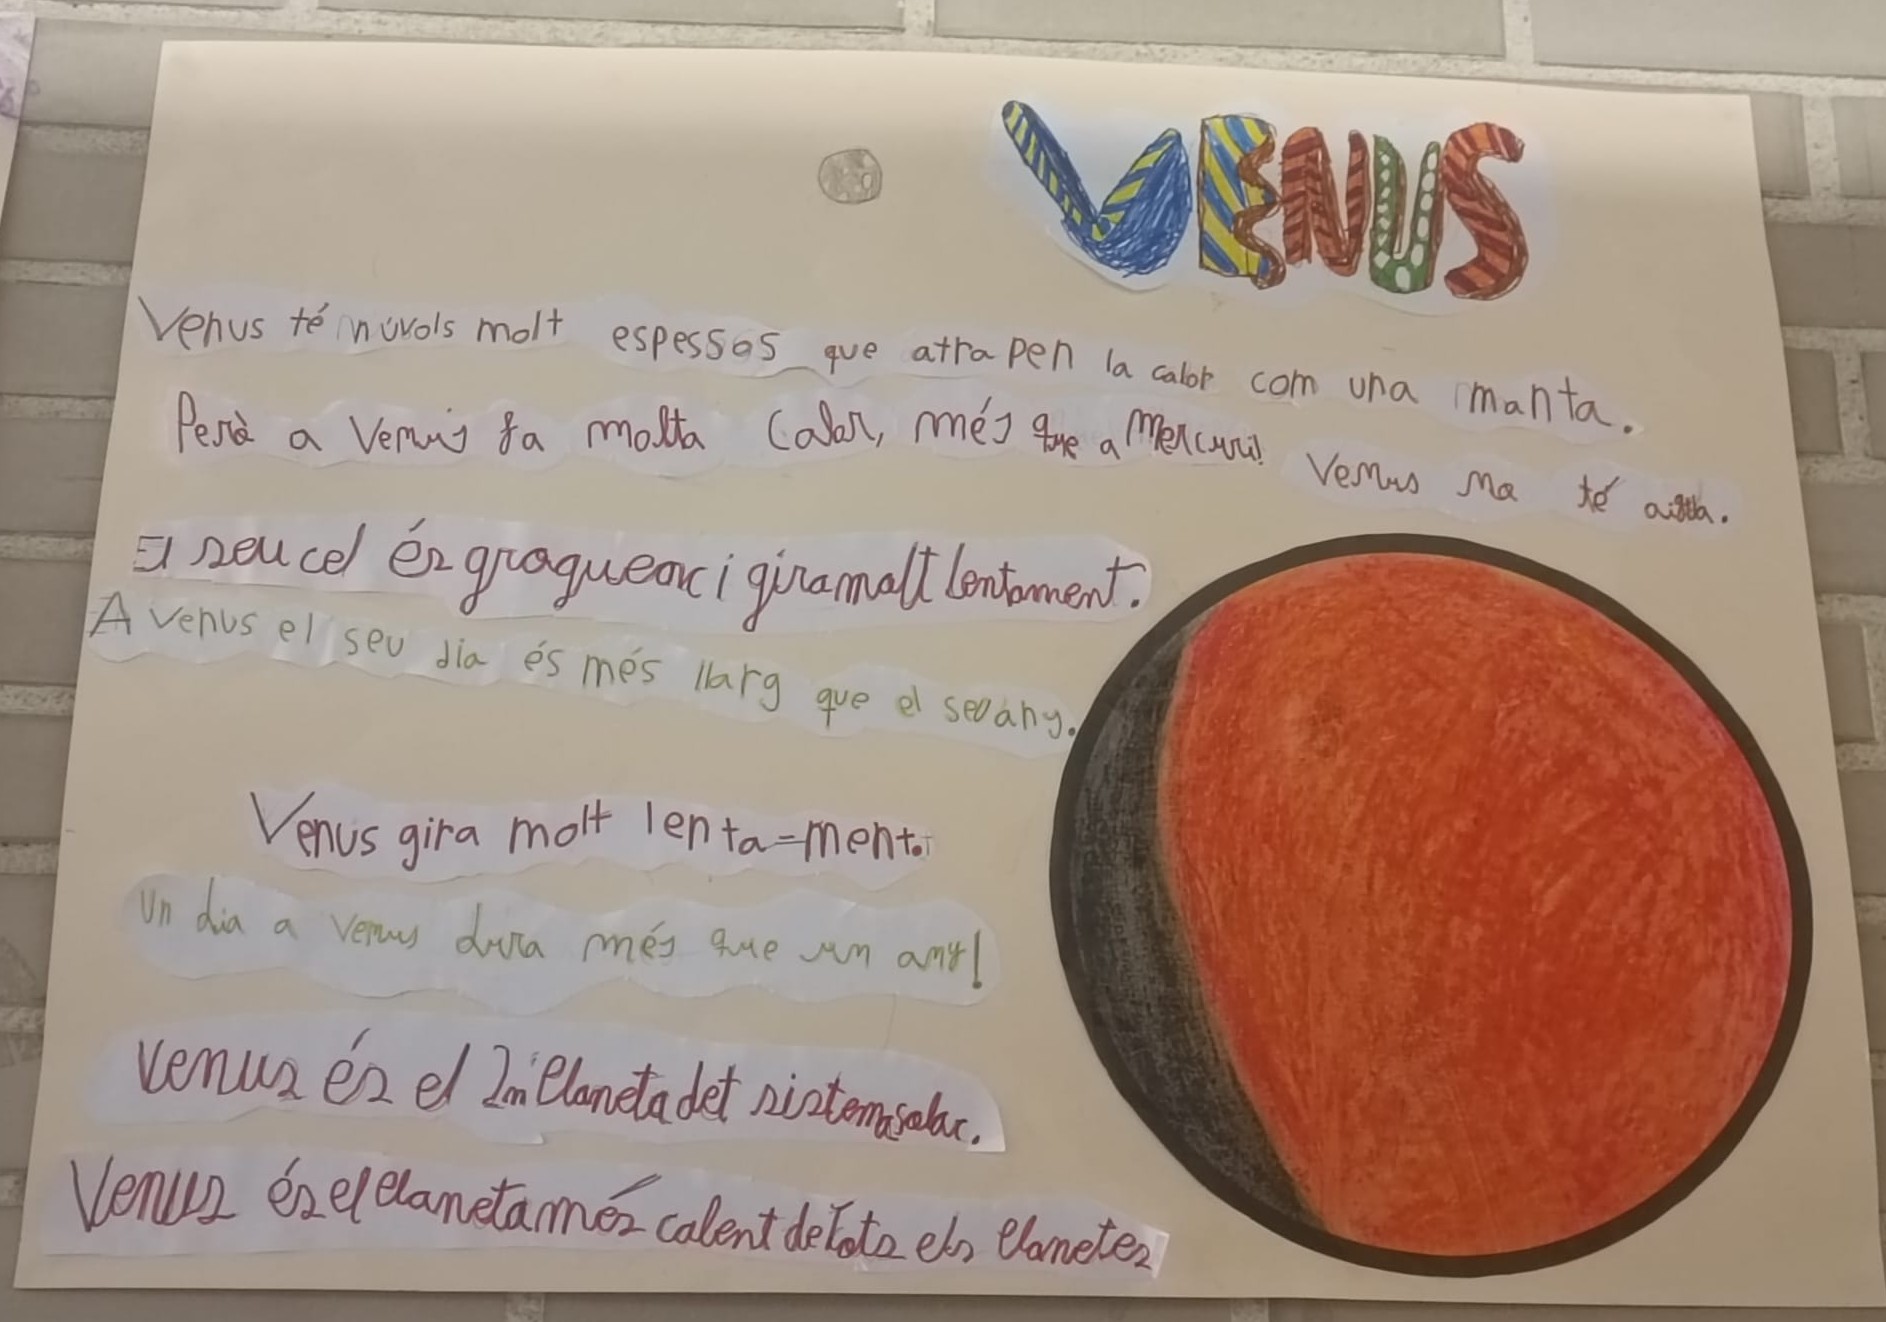 VENUS
Venus té núvols molt espessos que atrapen la calor com una manta.
Però a Venus fa molta calor, més que a Mercuri! Venus no té aigua.
El seu cel és groguenc i gira molt lentament.
A venus el seu dia és més llarg que el seu any.
Venus gira molt lenta=ment.
Un dia a venus dura més que un any!
Venus és el 2n Planeta del sistema solar.
Venus és el Planeta més calent de tots els Planetes